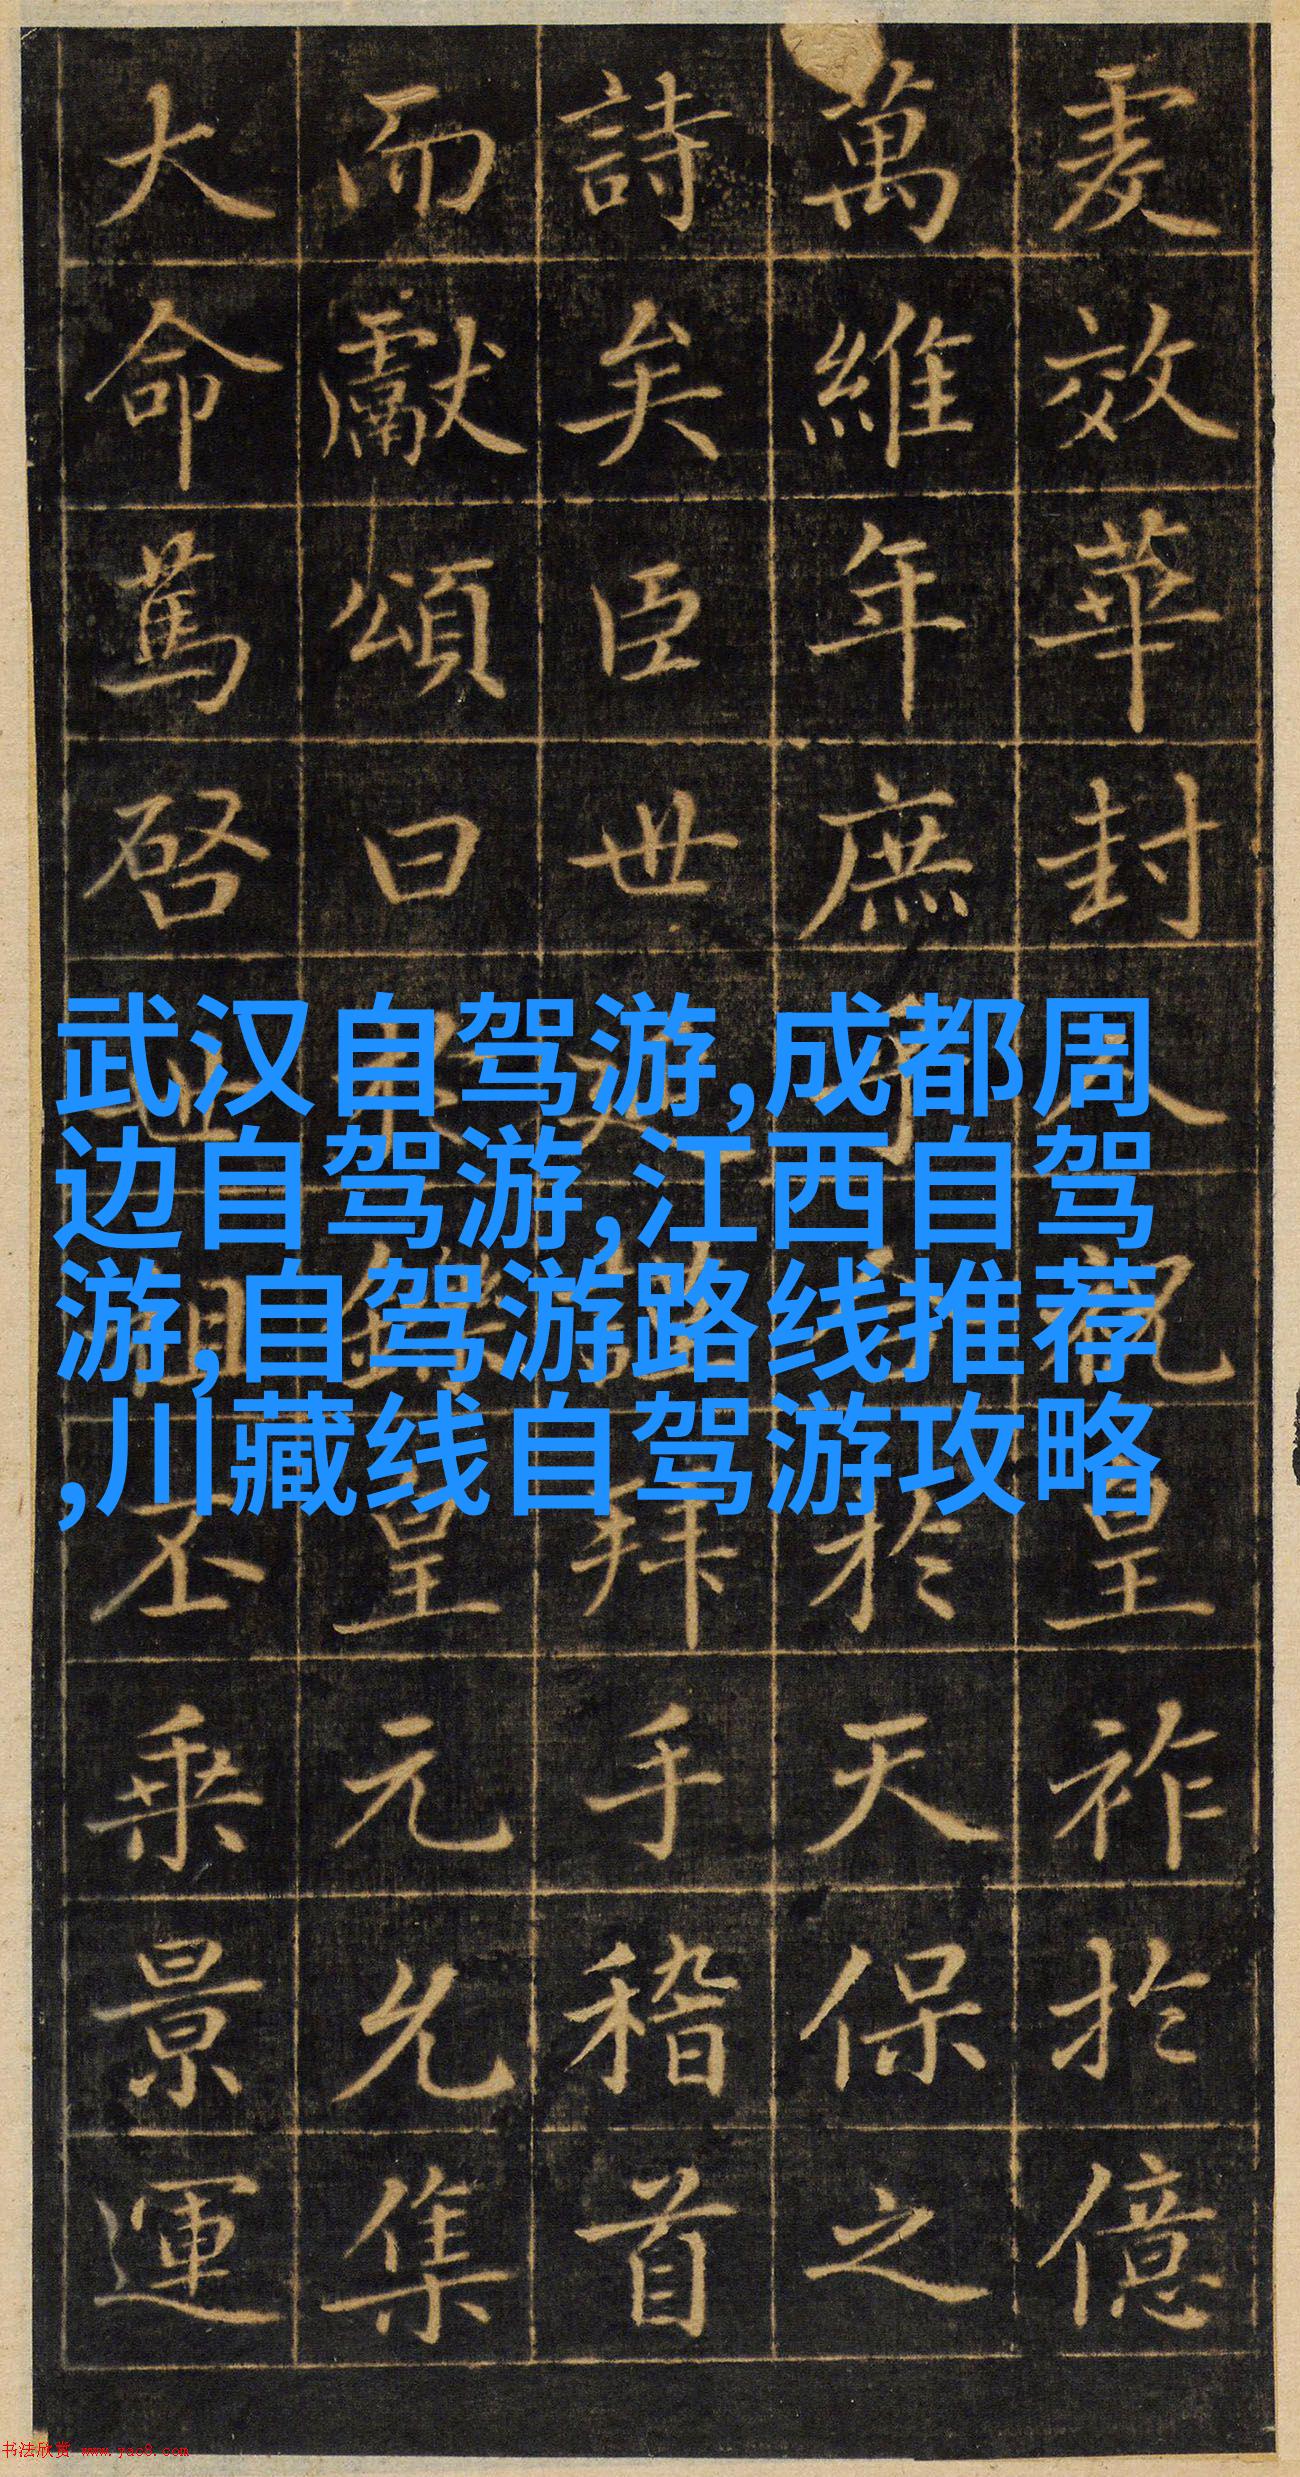 爰效華封人祝皇祚於億
萬維年庶於天保之
詩矣臣世拜手稽首
而獻頌曰皇元允集
大命篤啓世祖丕乘景運
武汉自驾游,成都周
边自驾游,江西自驾
游,自驾游路线推荐
,川藏线自驾游攻略
书法欣赏 www.yac8.com